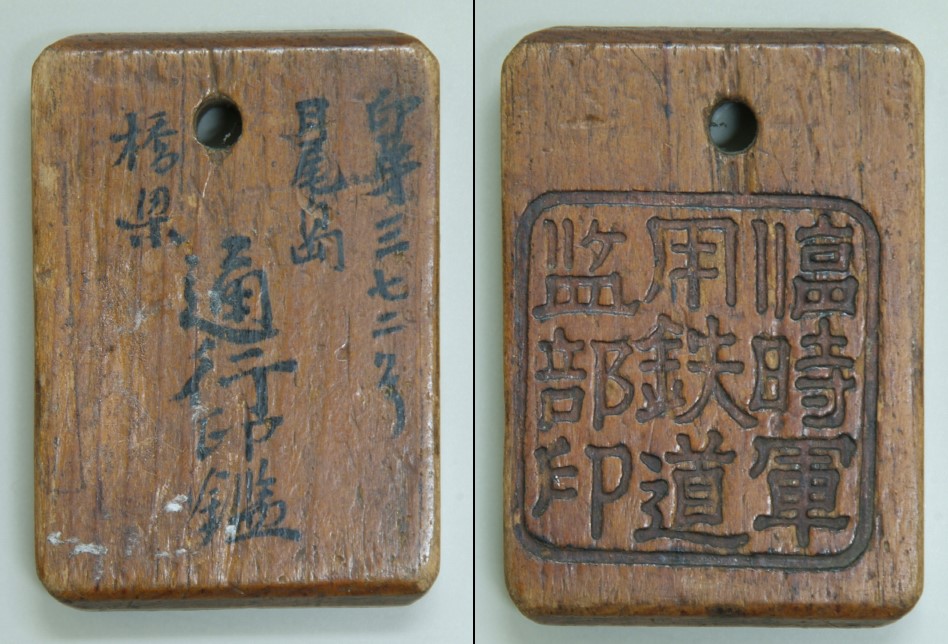 印第三七二号
月尾島
通行印鑑
橋梁
臨時軍
用鉄道
監部印